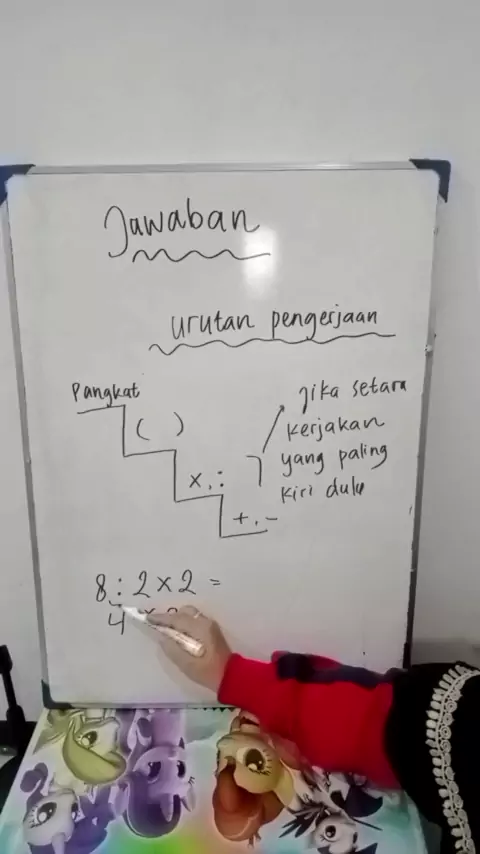 Jawaban
urutan pengerjaan
Pangkat
( )
x, :
+, -
jika setara
kerjakan
yang paling
kiri dulu
8 : 2 x 2 =
4 x